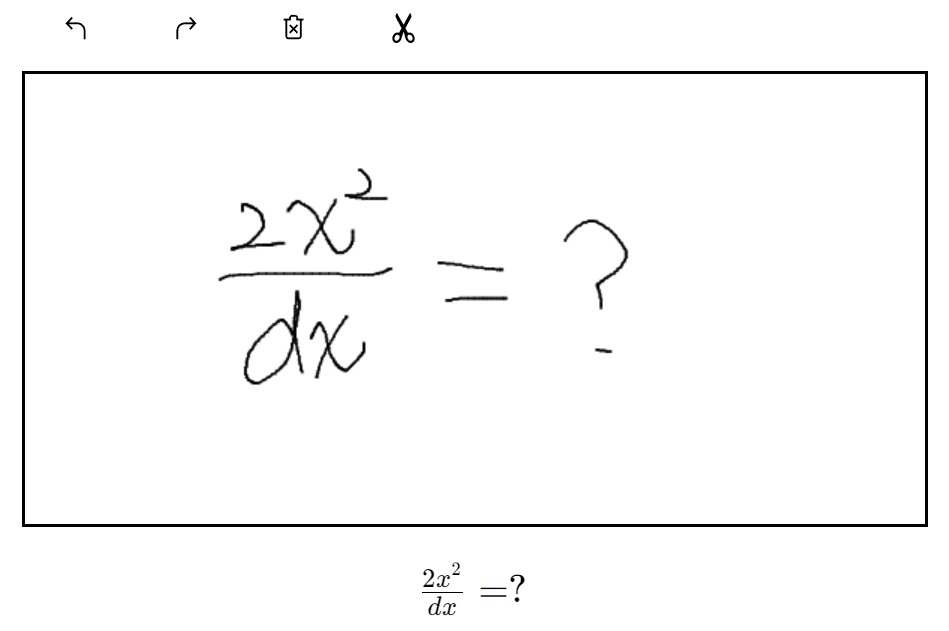 \frac{2x^2}{dx} = ?
\frac{2x^2}{dx} =?